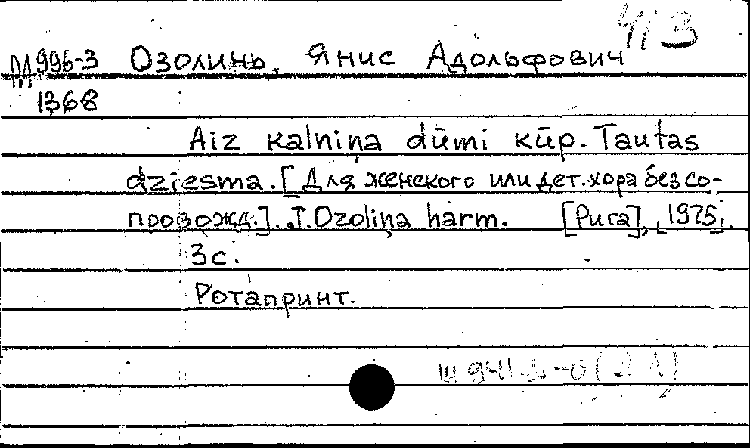 ЧЗ
М996-3 Озолинь, Янис Адольфович
1368
Aiz kalniņa dūmi kūp. Tautas
dziesma. [Для женского или дет. хора без со-
провожд.]. J. Ozoliņa harm. [Рига], [1975].
3 с.
Ротапринт.